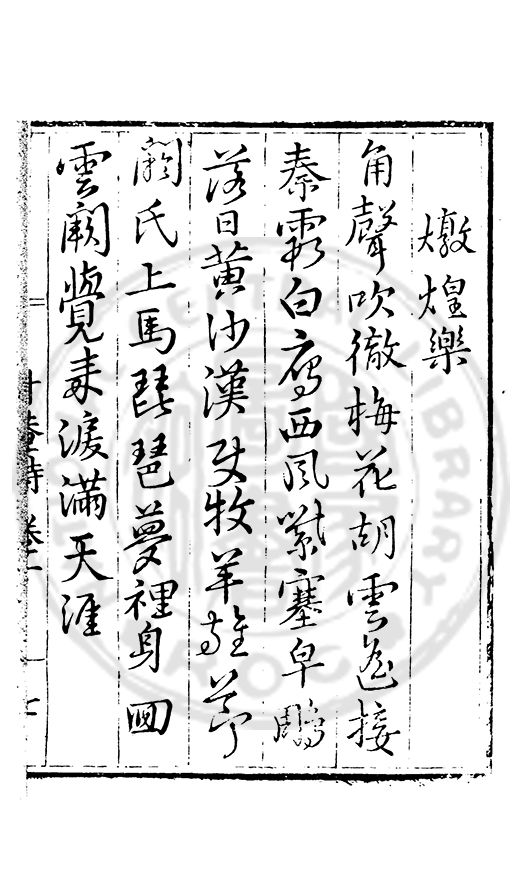 燉煌樂
角聲吹徹梅花胡雲遙接
秦霞白鴈西風紫塞皁鵰
落日黃沙漢使牧羊旌節
閼氏上馬琵琶夢裡身回
雲闕覺來淚滿天涯
七